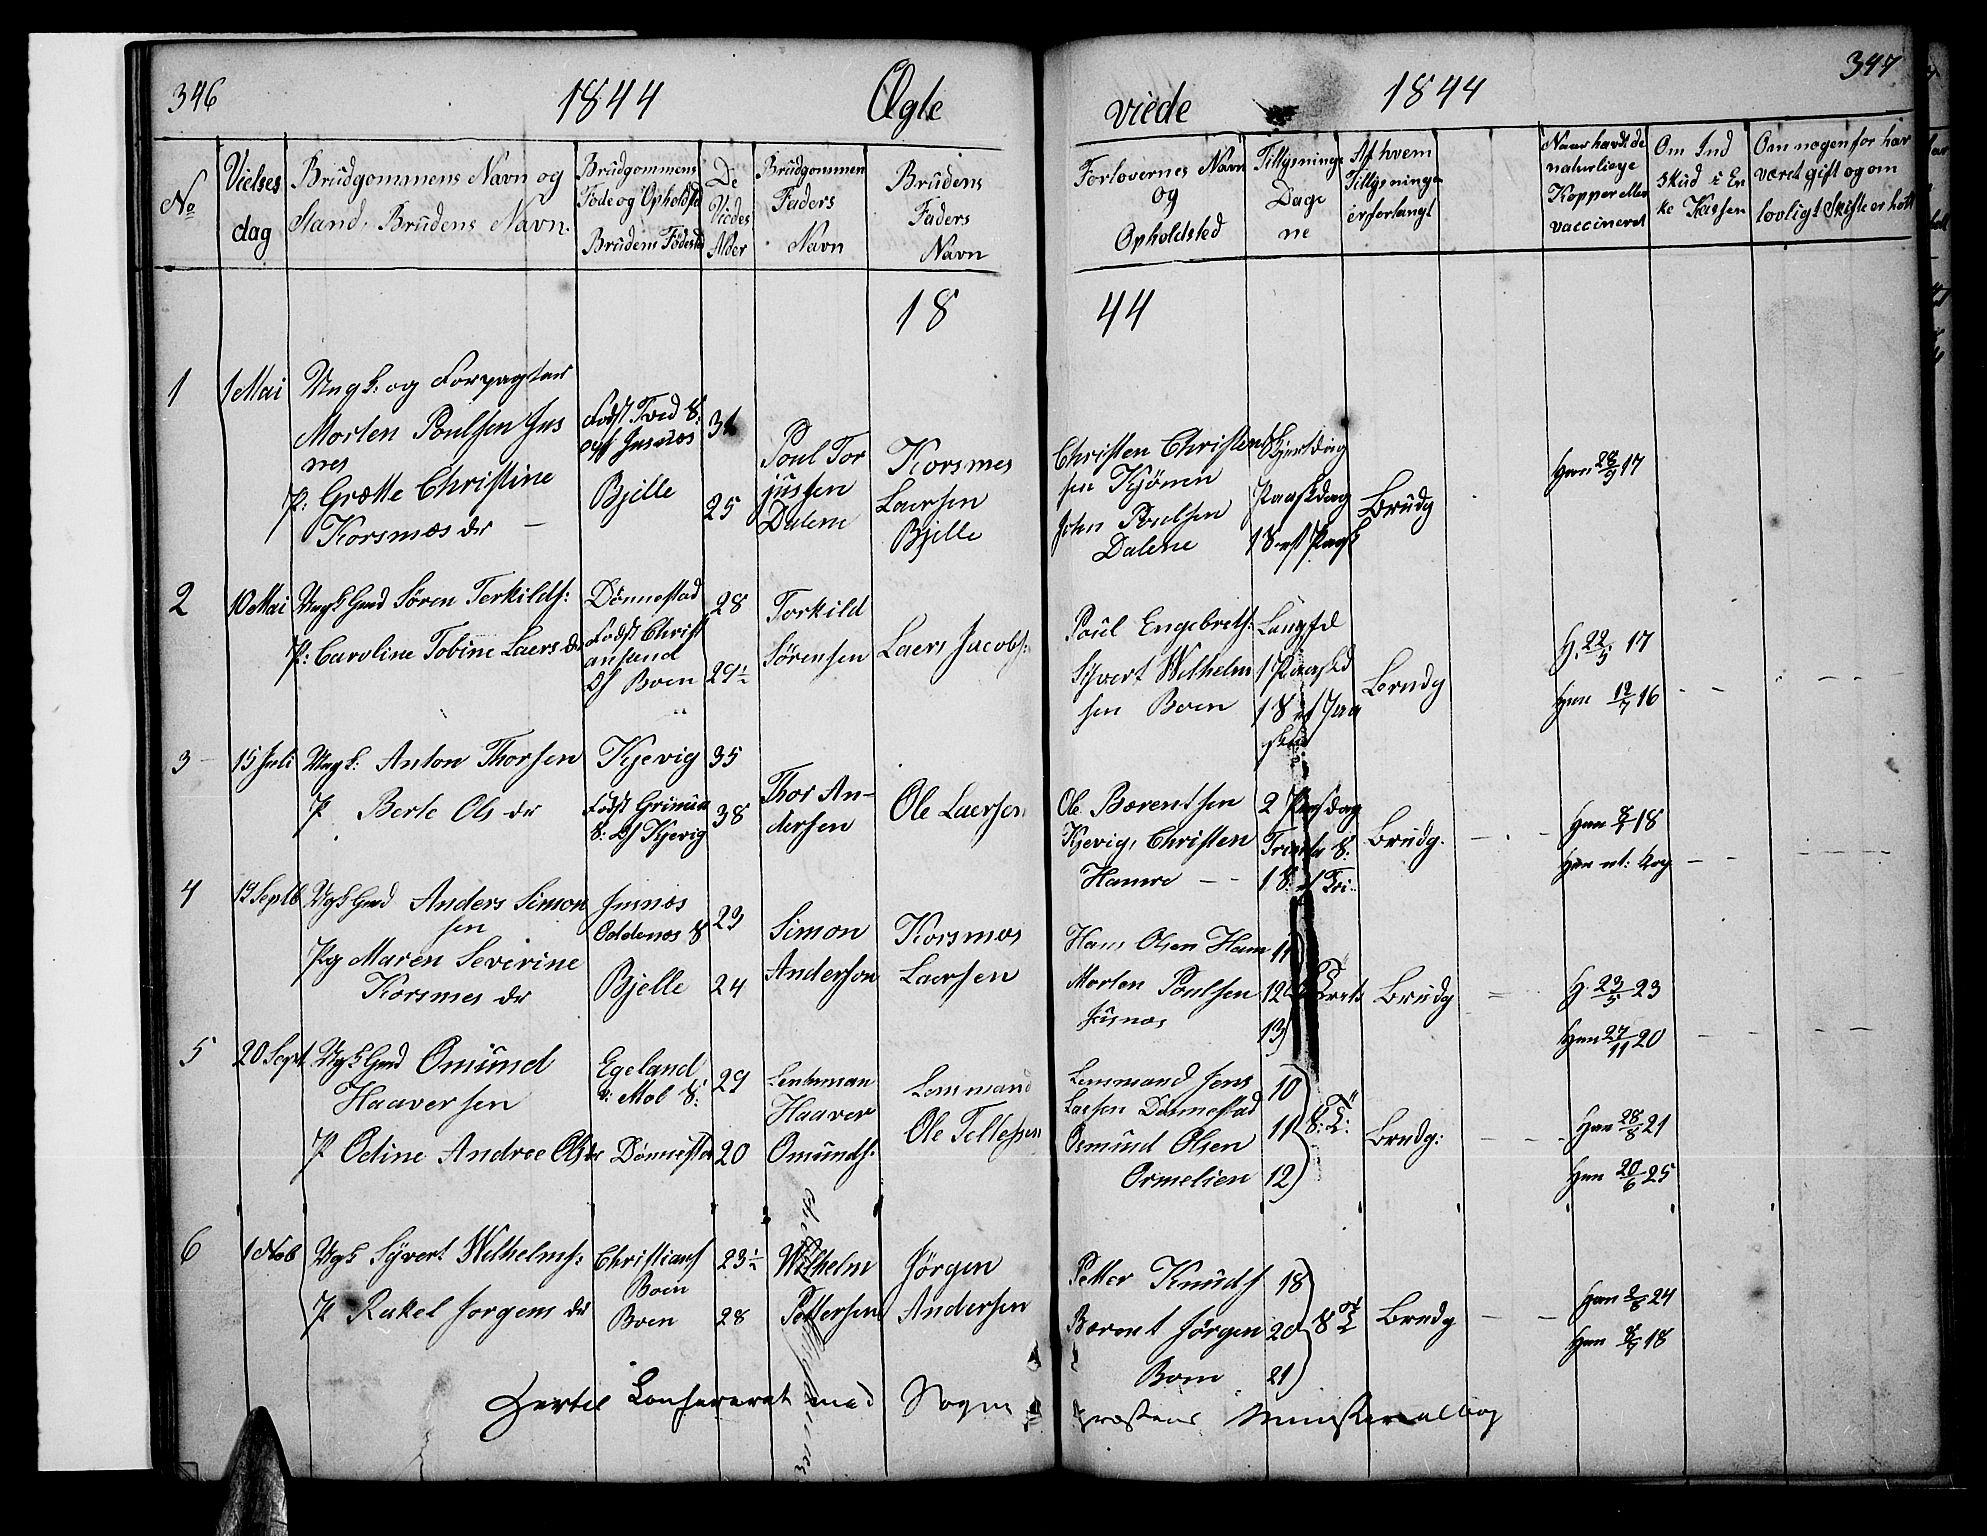 346
1844
Ægte
viede
1844
347
No
Vielses
dag
Brudgommens Navn og
Stand, Brudens Navn.
Brudgommens
Føde og Opholdsd
Brudens Fødested
De
Viedes
Alder
Brudgommen
Faders
Navn
Brudens
Faders
Navn
Forlovernes Navn
og
Opholdsted
Tillysnings
Dage
ne
Af hvem
Tillysningen
er forlangt
Naar havdt de
naturliege
Kopper eller
vaccineret
Om Ind
skud i En
ke Kassen
Om nogen for har
været gift og om
lovligt Skifte er holt
18
44
1
1 Mai
Ungk: og Forpagter
Morten Poulsen Jus
nes
P: Grætte Christine
Korsmæs dr
Født Tved S:
Jusnæs
Bjelle
25
Poul Tor
jussen
Dalene
Korsmes
Laersen
Bjelle
Christen Christen
sen Kjönen
John Poulsen
Dalene
Skjertdag
Paaskdag
1 S eft Pask
Brudg
Hun 28/9 17
2
10 Mai
Ungk Gmd Sören Terkilds:
P: Caroline Tobine Laers dr
Dønnestad
Født Christ
ansand
Of Boen
28
29½
Torkild
Sörensen
Laers Jacobs:
Poul Engebrets:
Syvert Wilhelm
sen Boen
Langfd
1 Paaskd
1 S ef Paa
skd
Brudg
H. 22/5 17
Hun 12/7 16
3
15 Juli
Ungk: Anton Thorsen
P Berte Ols dr
Kjevig
Født Grimma
S: Of Kjevig
35
38
Thor An-
dersen
Ole Laersen
Ole Bærentsen
Kjevig, Christen
Hamre
2 Pinsdag
S:
1 S: ef Tri
Brudg.
18
4
13 Septb
Ugk Gmd Anders Simon
sen
Pg Maren Severine
Korsmes dr
Jusnæs
Oddernes S
Bjelle
23
24
Simon
Anderson
Korsmæs
Laersen
Hans Olsen Ham
Morten Poulsen
Jusnæs
11
12
13
Brudg
H. 23/5 23
Hun 27/11 20
5
20 Sept
Ugk Gmd Omund
Haaversen
P Odine Andree Ols dr
Egeland
v: Mol S:
Dønnestad
29
20
Lensman
Haaver
Omunds:
Lensmand
Ole Tellefsen
Lensmand Jens
Larsen Dønnestad
Osmund Olsen
Ormelien
10
11
12
Brudg:
Han 28/8 21
Hun 20/6 25
6
1 Nob
Ugk Syvert Wilhelms:
P Rakel Jorgens dr
Christians
Boen
Boen
23½
28
Wilhelm
Pettersen
Jörgen
Andersen
Petter Knuds
Bærent Jörgen
Boen
18
20
21
Brudg
24
18
Hertil Confereret med Sogne
præstens Ministerialbog